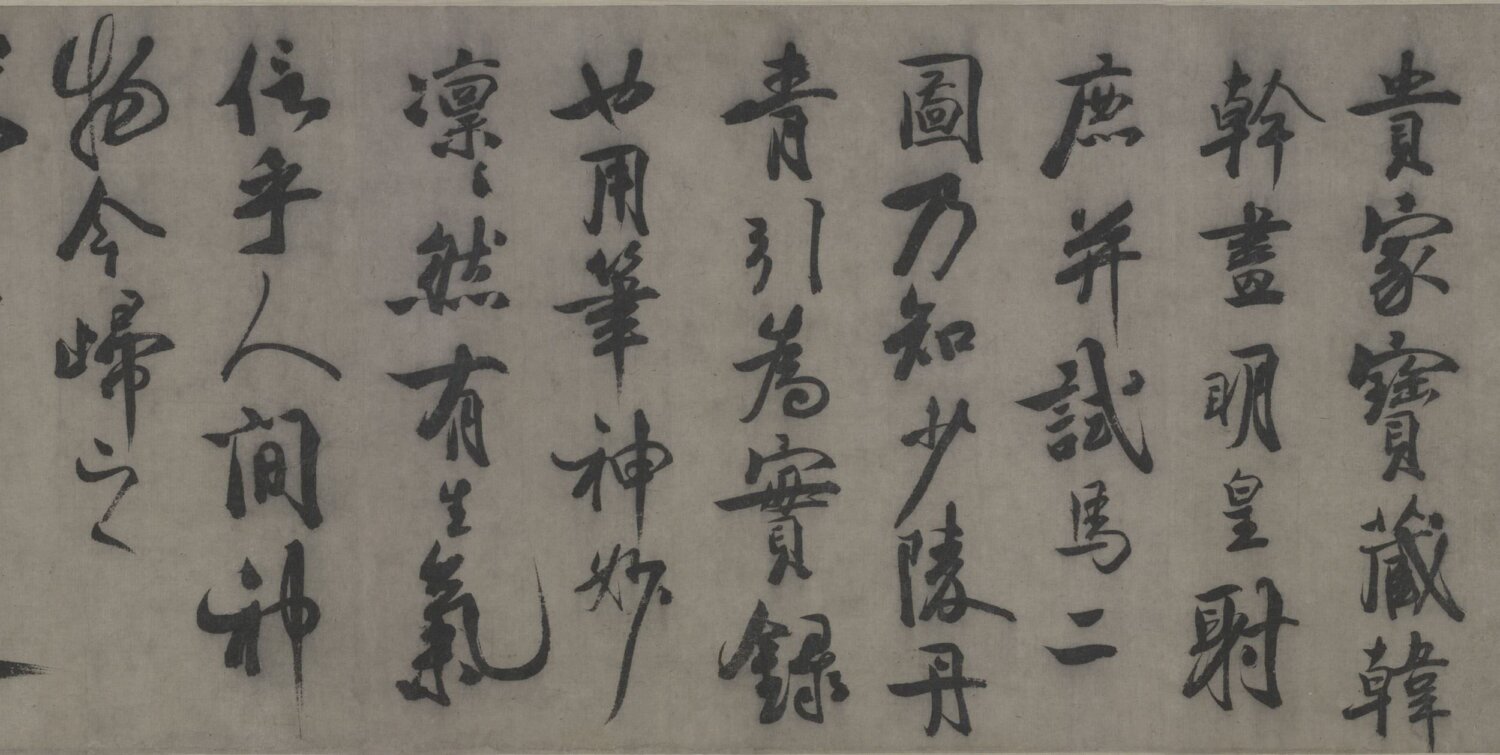 貴家寶藏韓
幹畫明皇射
鹿并試馬二
圖乃知少陵丹
青引為實錄
也用筆神妙
凛〻然有生氣
信乎人間神
物今歸之